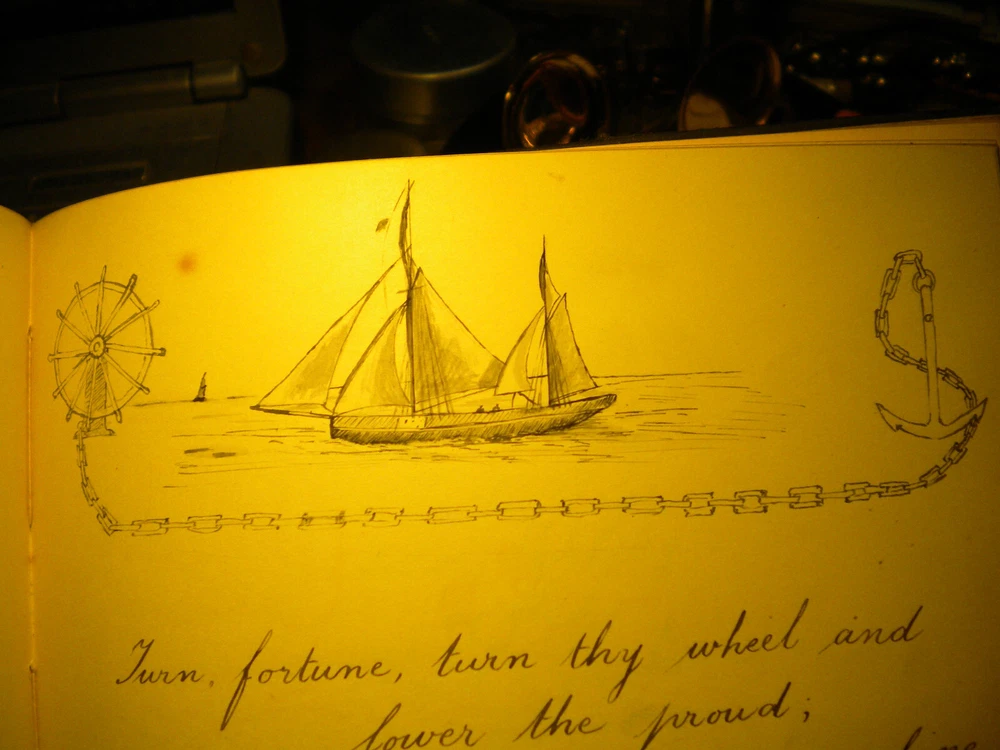 Turn, fortune, turn thy wheel and
lower the proud;